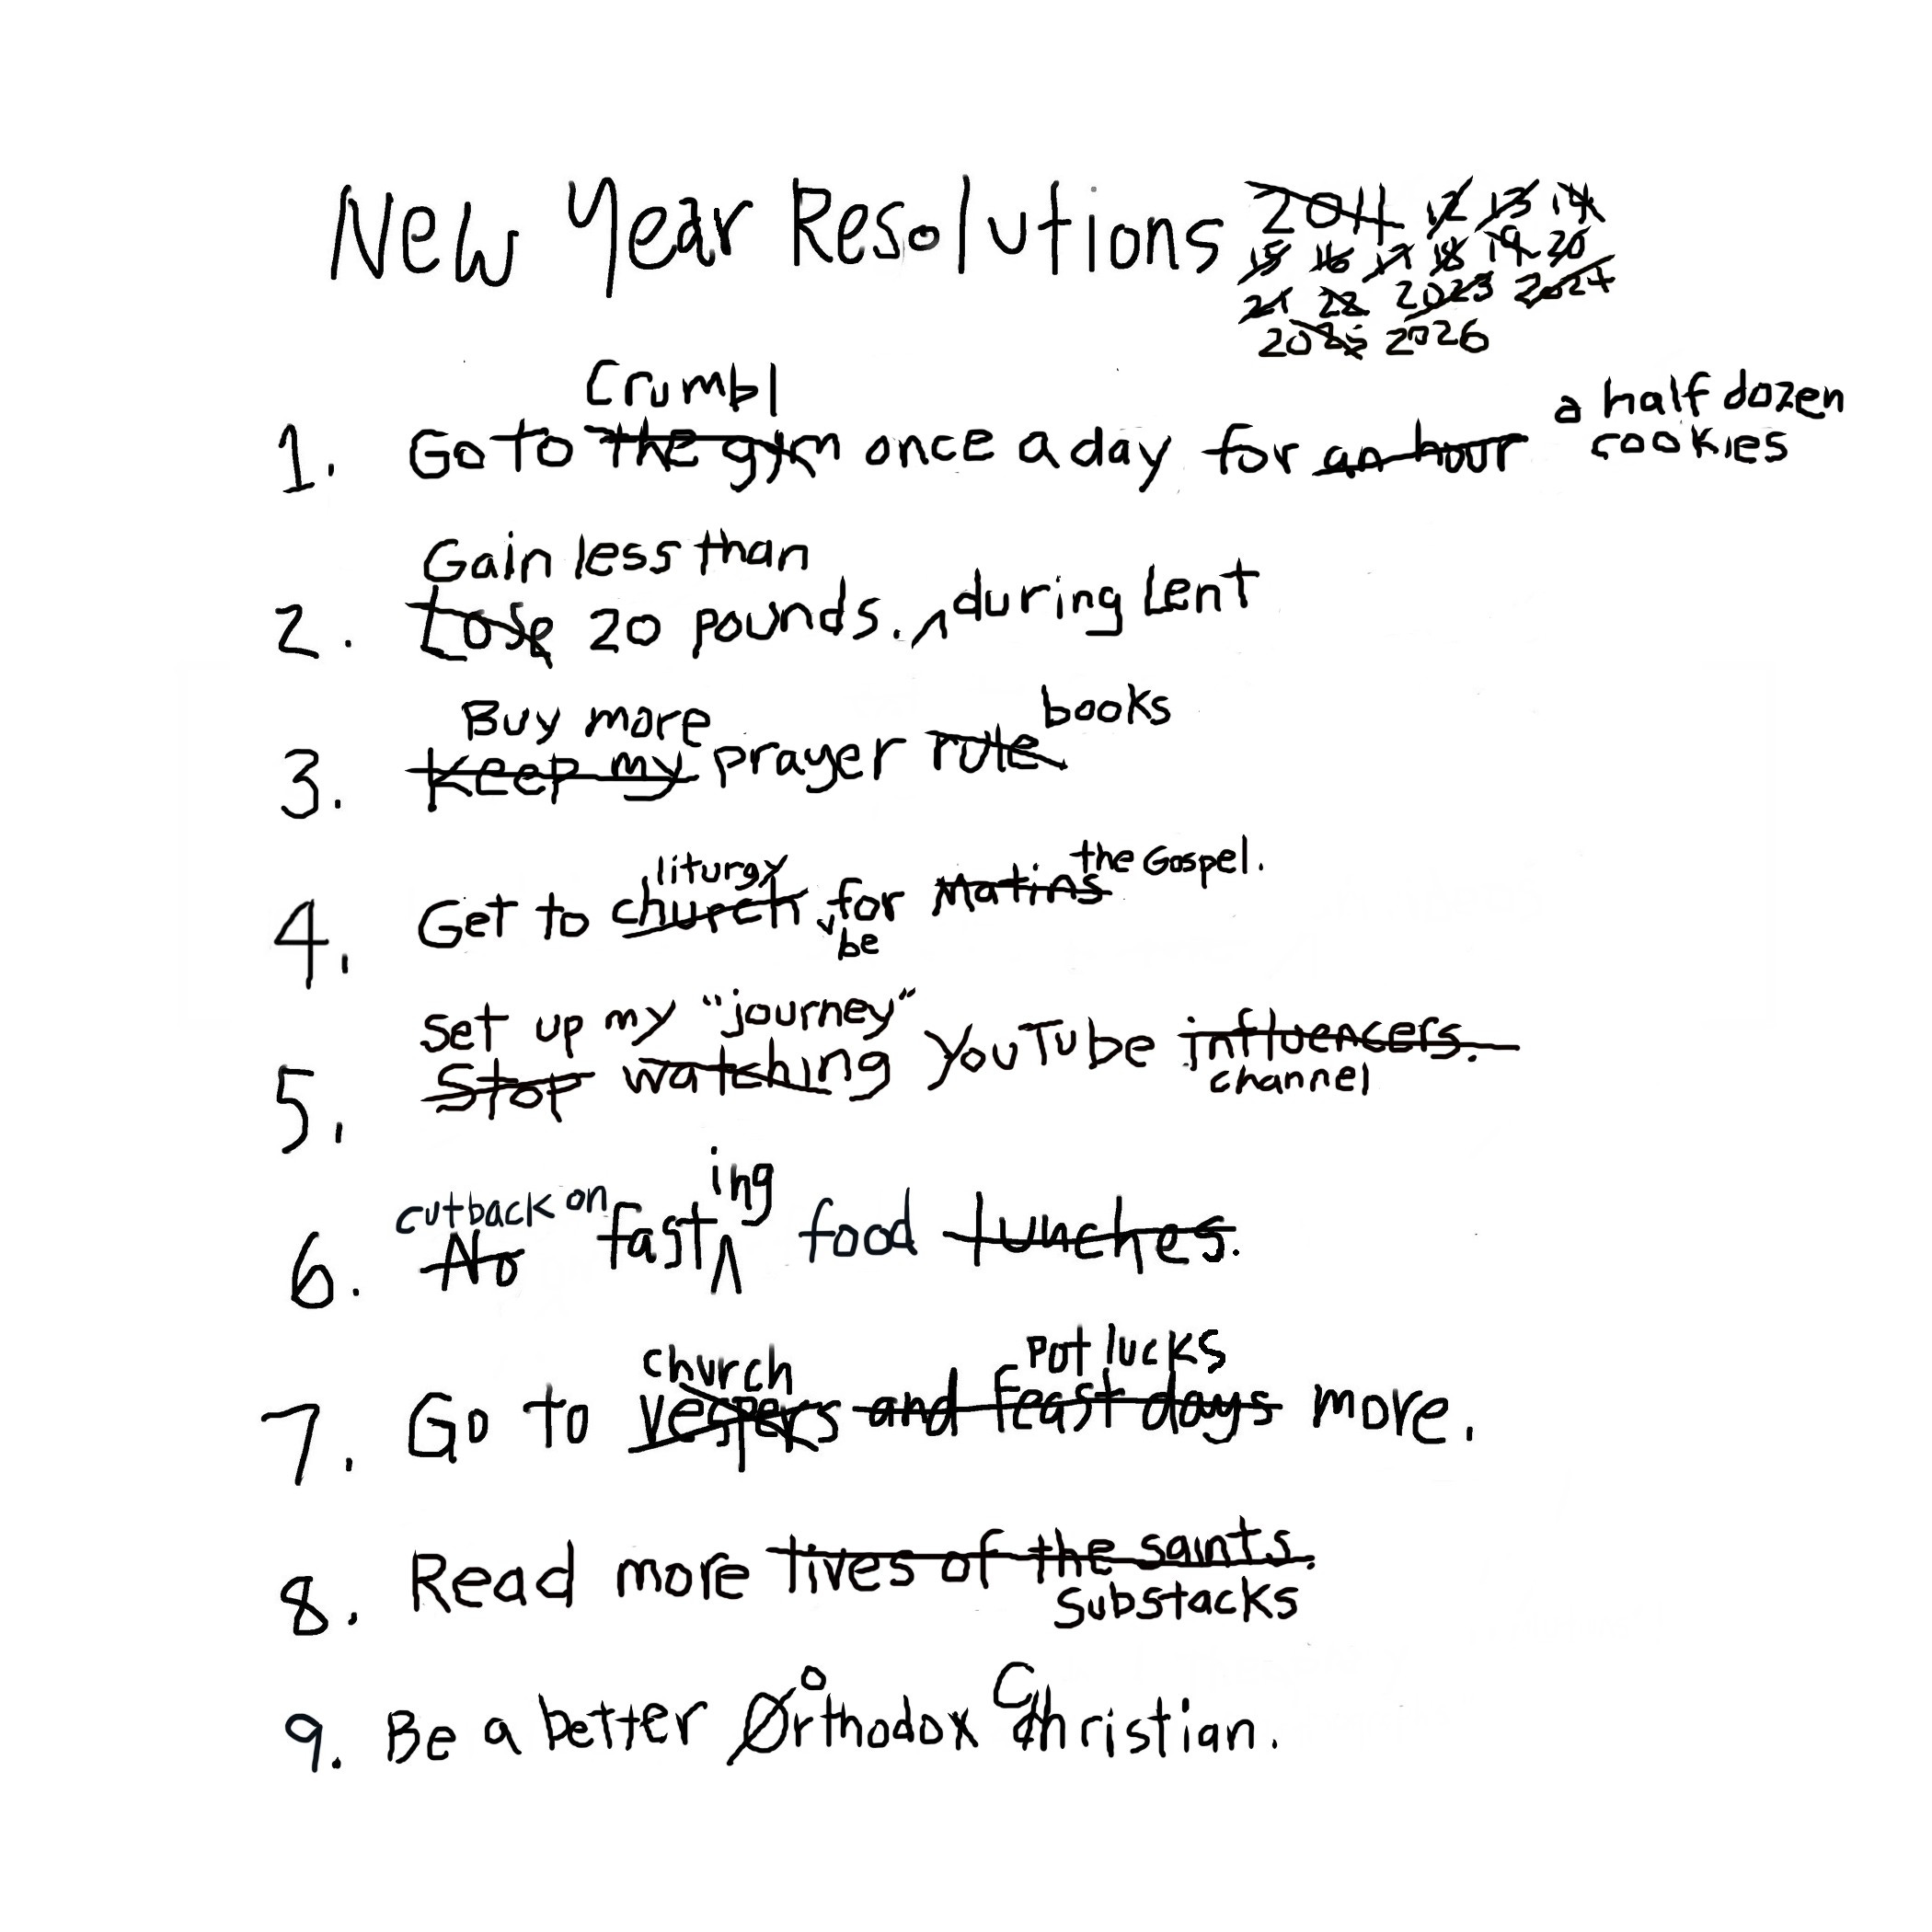 New Year Resolutions 2011 12 13 14
15 16 17 18 19 20
21 22 2023 2024
2025 2026
Crumbl
a half dozen
1. Go to the gym once a day for an hour cookies
Gain less than
2. Lose 20 pounds. ^ during Lent
Buy more books
3. Keep my prayer rule
liturgy the Gospel.
4. Get to church for Matins
be
set up my "journey"
5. Stop watching YouTube influencers.
channel
cutback on ing
6. No fast ^ food lunches.
church pot lucks
7. Go to vespers and feast days more.
8. Read more lives of the saints.
Substacks
o C
9. Be a better Orthodox Christian.